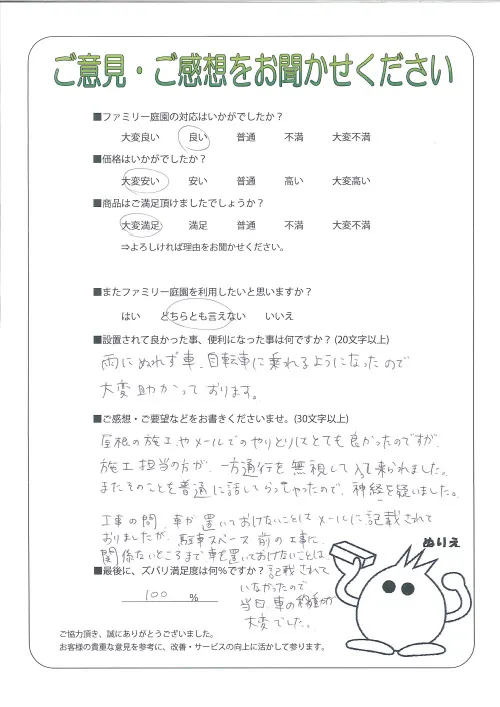 ご意見・ご感想をお聞かせください
■ファミリー庭園の対応はいかがでしたか？
大変良い 良い 普通 不満 大変不満
■価格はいかがでしたか？
大変安い 安い 普通 高い 大変高い
■商品はご満足頂けましたでしょうか？
大変満足 満足 普通 不満 大変不満
⇒よろしければ理由をお聞かせください。
■またファミリー庭園を利用したいと思いますか？
はい どちらとも言えない いいえ
■設置されて良かった事、便利になった事は何ですか？(20文字以上)
雨にぬれず車、自転車に乗れるようになったので
大変助かっております。
■ご感想・ご要望などをお書きくださいませ。(30文字以上)
屋根の施工やメールでのやりとりはとても良かったのですが、
施工担当の方が、一方通行を無視して来られました。
またそのことを普通に話してらっしゃったので、神経を疑いました。
工事の間、車が置いておけないことはメールに記載されて
おりましたが、駐車スペース前の工事に
関係ないところまで車を置いておけないことは
■最後に、ズバリ満足度は何％ですか？
記載されて
いなかったので
当日、車の移動が
大変でした。
100 %
ぬりえ
ご協力頂き、誠にありがとうございました。
お客様の貴重な意見を参考に、改善・サービスの向上に活かして参ります。